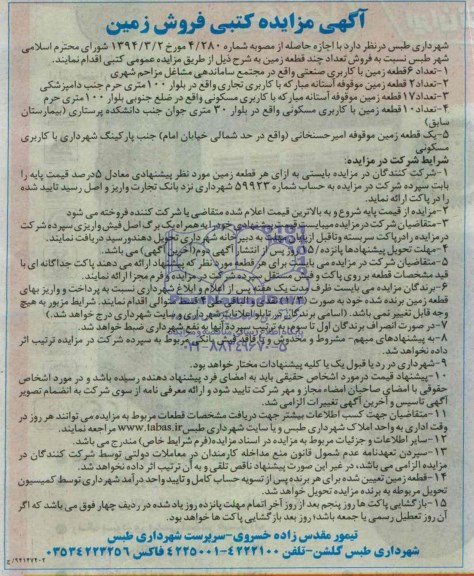 آگهی مزایده کتبی فروش زمین
شهرداری طبس درنظر دارد با اجازه حاصله از مصوبه شماره ۴/۲۸۰ مورخ ۱۳۹۴/۳/۲ شورای محترم اسلامی
شهر طبس نسبت به فروش تعداد چند قطعه زمین به شرح ذیل از طریق مزایده عمومی کتبی اقدام نمایند.
۱-تعداد ۶قطعه زمین با کاربری صنعتی واقع در مجتمع ساماندهی مشاغل مزاحم شهری
۲-تعداد۲ قطعه زمین موقوفه آستانه مبارکه با کاربری تجاری واقع در بلوار ۱۰۰متری حرم جنب دامپزشکی
۳-تعداد۱۷ قطعه زمین موقوفه آستانه مبارکه با کاربری مسکونی واقع در ضلع جنوبی بلوار ۱۰۰متری حرم
۴-تعداد۱۰ قطعه زمین با کاربری مسکونی واقع در بلوار ۳۰ متری جوان جنب دانشکده پرستاری (بیمارستان
سابق)
۵-یک قطعه زمین موقوفه امیرحسنخانی (واقع در حد شمالی خیابان امام) جنب پارکینگ شهرداری با کاربری
مسکونی
شرایط شرکت در مزایده:
۱-شرکت کنندگان در مزایده بایستی به ازای هر قطعه زمین مورد نظر پیشنهادی معادل ۵درصد قیمت پایه را
بابت سپرده شرکت در مزایده به حساب شماره ۵۹۹۲۳ شهرداری نزد بانک تجارت واریز و اصل رسید تایید شده
را در پاکت ارائه نماید.
۲-مزایده از قیمت پایه شروع و به بالاترین قیمت اعلام شده متقاضی یا شرکت کننده فروخته می شود
۳-متقاضیان شرکت درمزایده میبایست خود را به همراه یک برگ اصل فیش واریزی سپرده شرکت
در مزایده را در پاکت سربسته وتاقبل از پایان مهلت به دبیرخانه شهرداری تحویل دهند و رسید دریافت نمایند.
۴-مهلت تحویل پیشنهادها پانزده/۱۵ روز پس از انتشار آگهی دوم(آخرین آگهی) می باشد.
۵-متقاضیان شرکت در مزایده می بایست برای هر قطعه مورد نظر که پیشنهاد ارائه می دهند پاکت جداگانه ای با
قید مشخصات قطعه بر روی پاکت و فیش مستقل سپرده شرکت در مزایده و فرم مجزا ارائه نمایند.
۶-برندگان مزایده می بایست ظرف مدت یک هفته پس از اعلام و ابلاغ شهرداری نسبت به پرداخت و واریز بهای
قطعه زمین برنده شده خود به صورت اقدام نمایند. شرایط مزبور به هیچ
وجه قابل تغییر نمی باشد. (اسامی برندگان در تابلو اعلانات شهرداری و سایت شهرداری درج خواهد شد.)
۷-در صورت انصراف برندگان اول تا سوم، به ترتیب سپرده آنها به نفع شهرداری ضبط خواهد شد.
۸-به پیشنهادهای مبهم- مشروط و مخدوش و یا فاقد فیش بانکی مربوط به سپرده شرکت در مزایده ترتیب اثر
داده نخواهد شد.
۹-شهرداری در رد یا قبول یک یا کلیه پیشنهادات مختار خواهد بود.
۱۰-پیشنهاد قیمت درمورد اشخاص حقیقی باید به امضای فرد پیشنهاد دهنده رسیده باشد و در مورد اشخاص
حقوقی با امضای صاحبان امضاء مجاز و مهر شرکت تایید شود و ارائه معرفی نامه از سوی شرکت به انضمام تصویر
آگهی تاسیس و آخرین آگهی تغییرات الزامی شد.
۱۱-متقاضیان جهت کسب اطلاعات بیشتر جهت دریافت مشخصات قطعات مربوط به مزایده می توانند هر روز در
وقت اداری به واحد املاک شهرداری طبس و یا سایت شهرداری طبس www.tabas.ir مراجعه نمایند.
۱۲-سایر اطلاعات و جزئیات مربوط به مزایده در اسناد مزایده(فرم شرایط خاص) مندرج می باشد.
۱۳-سپردن تعهدنامه عدم شمول قانون منع مداخله کارمندان در معاملات دولتی توسط شرکت کنندگان در
مزایده الزامی می باشد، در غیر این صورت پیشنهاد ناقص تلقی و به آن ترتیب اثر داده نخواهد شد.
۱۴-قطعه زمین تعیین شده برای هر برنده پس از تسویه حساب کامل و تایید واحد درآمد شهرداری توسط کمیسیون
تحویل مربوطه به برنده مزایده تحویل خواهد شد.
۱۵-بازگشایی پاکت ها روز پنجم بعد از روز آخر اتمام مهلت پانزده روز یاد شده در ردیف چهار فوق می باشد که اگر
آن روز تعطیل رسمی یا جمعه باشد؛ روز بعد بازگشایی پاکت ها خواهد بود.
تیمور مقدس زاده خسروی-سرپرست شهرداری طبس
شهرداری طبس گلشن-تلفن ۴۲۲۲۱۰۰-۴۲۲۵۰۰۱ فاکس ۰۳۵۳۴۲۲۳۲۵۶
۰۲۱-۸۸۳۴۹۶۷۰-۵